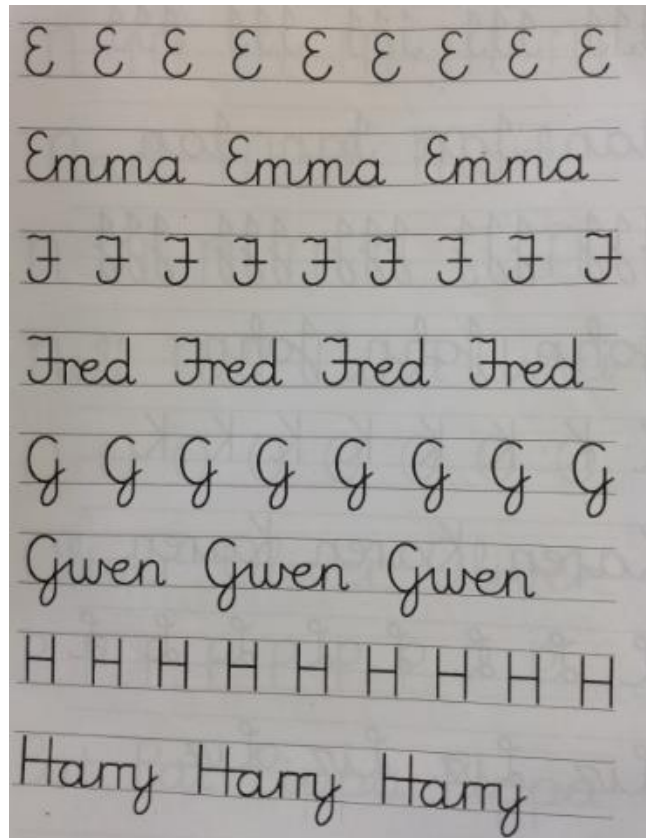 E E E E E E E E E
Emma Emma Emma
F F F F F F F F F
Fred Fred Fred Fred
G G G G G G G G
Gwen Gwen Gwen
H H H H H H H H H
Harry Harry Harry